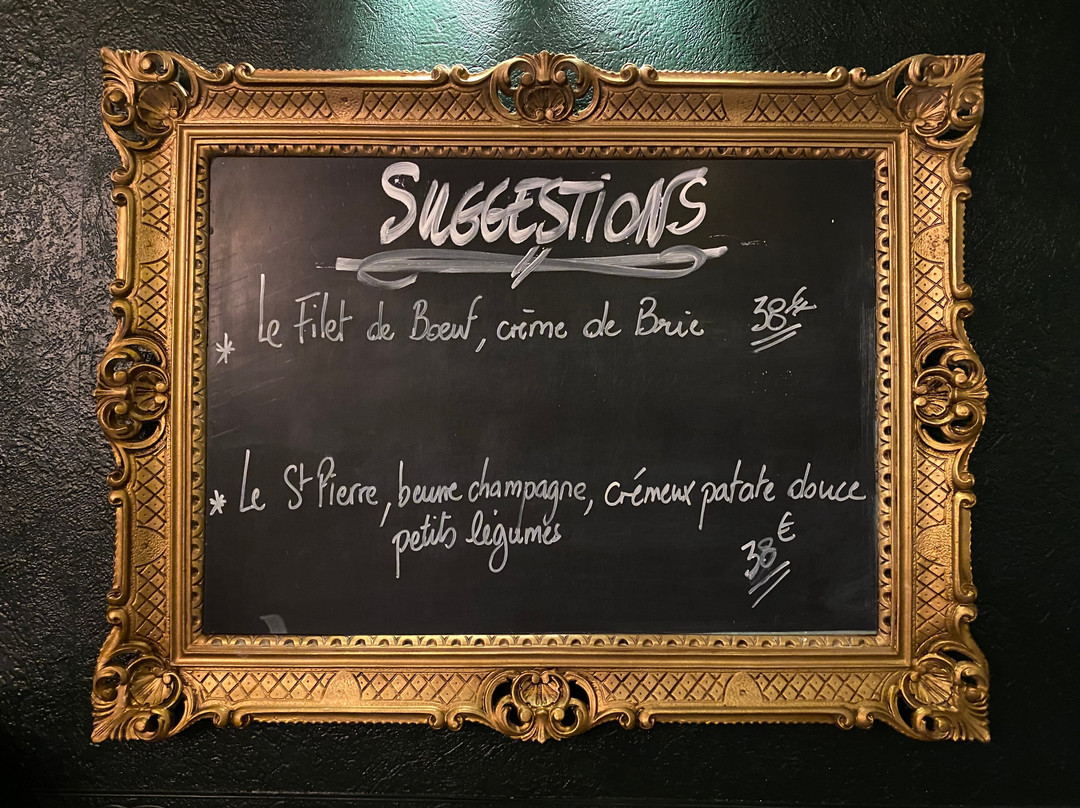 SUGGESTIONS
* Le Filet de Bœuf, crème de Brie 38€
* Le St Pierre, beurre champagne, crémeux patate douce
petits légumes
38€